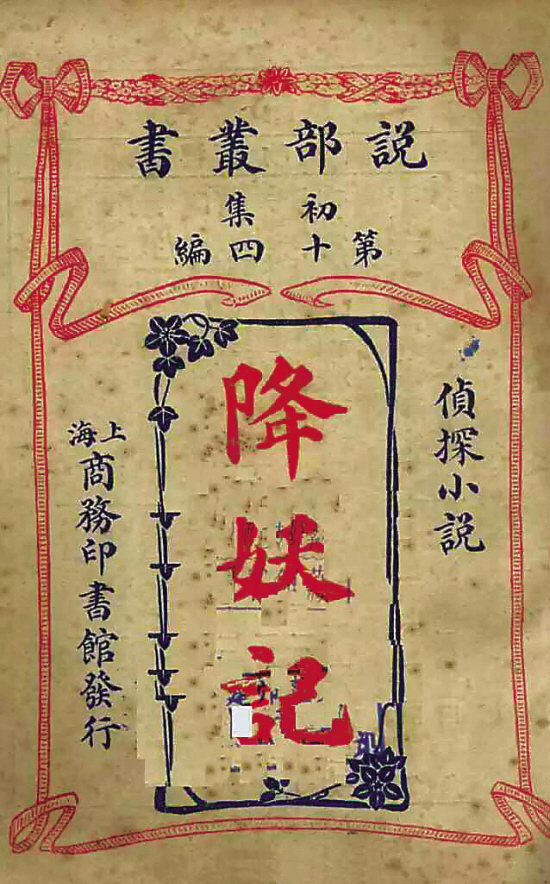 説部叢書
初集
第十四編
偵探小説
降妖記
上海
商務印書館發行